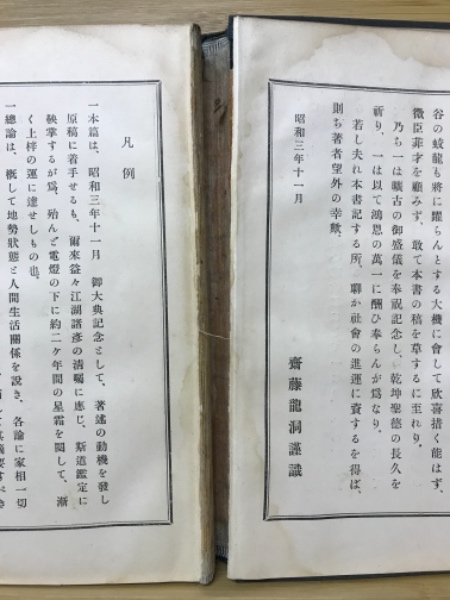 谷の蛟龍も將に躍らんとする大機に會して欣喜措く能はず、
微臣菲才を顧みず、敢て本書の稿を草するに至れり。
乃ち一は曠古の御盛儀を奉祝記念し、乾坤聖德の長久を
祈り、一は以て鴻恩の萬一に酬ひ奉らんが爲なり。
若し夫れ本書記する所、聊か社會の進運に資するを得ば、
則ち著者望外の幸歟。
昭和三年十一月
齋藤龍洞謹識
凡例
一本篇は、昭和三年十一月 御大典記念として、著述の動機を發し
原稿に着手せるも、爾來益々江湖諸彥の清囑に應じ、斯道鑑定に
鞅掌するが爲、殆んど電燈の下に約二ケ年間の星霜を閲して、漸
く上梓の運に達せしもの也。
一總論は、概して地勢狀態と人間生活關係を說き、各論に家相一切